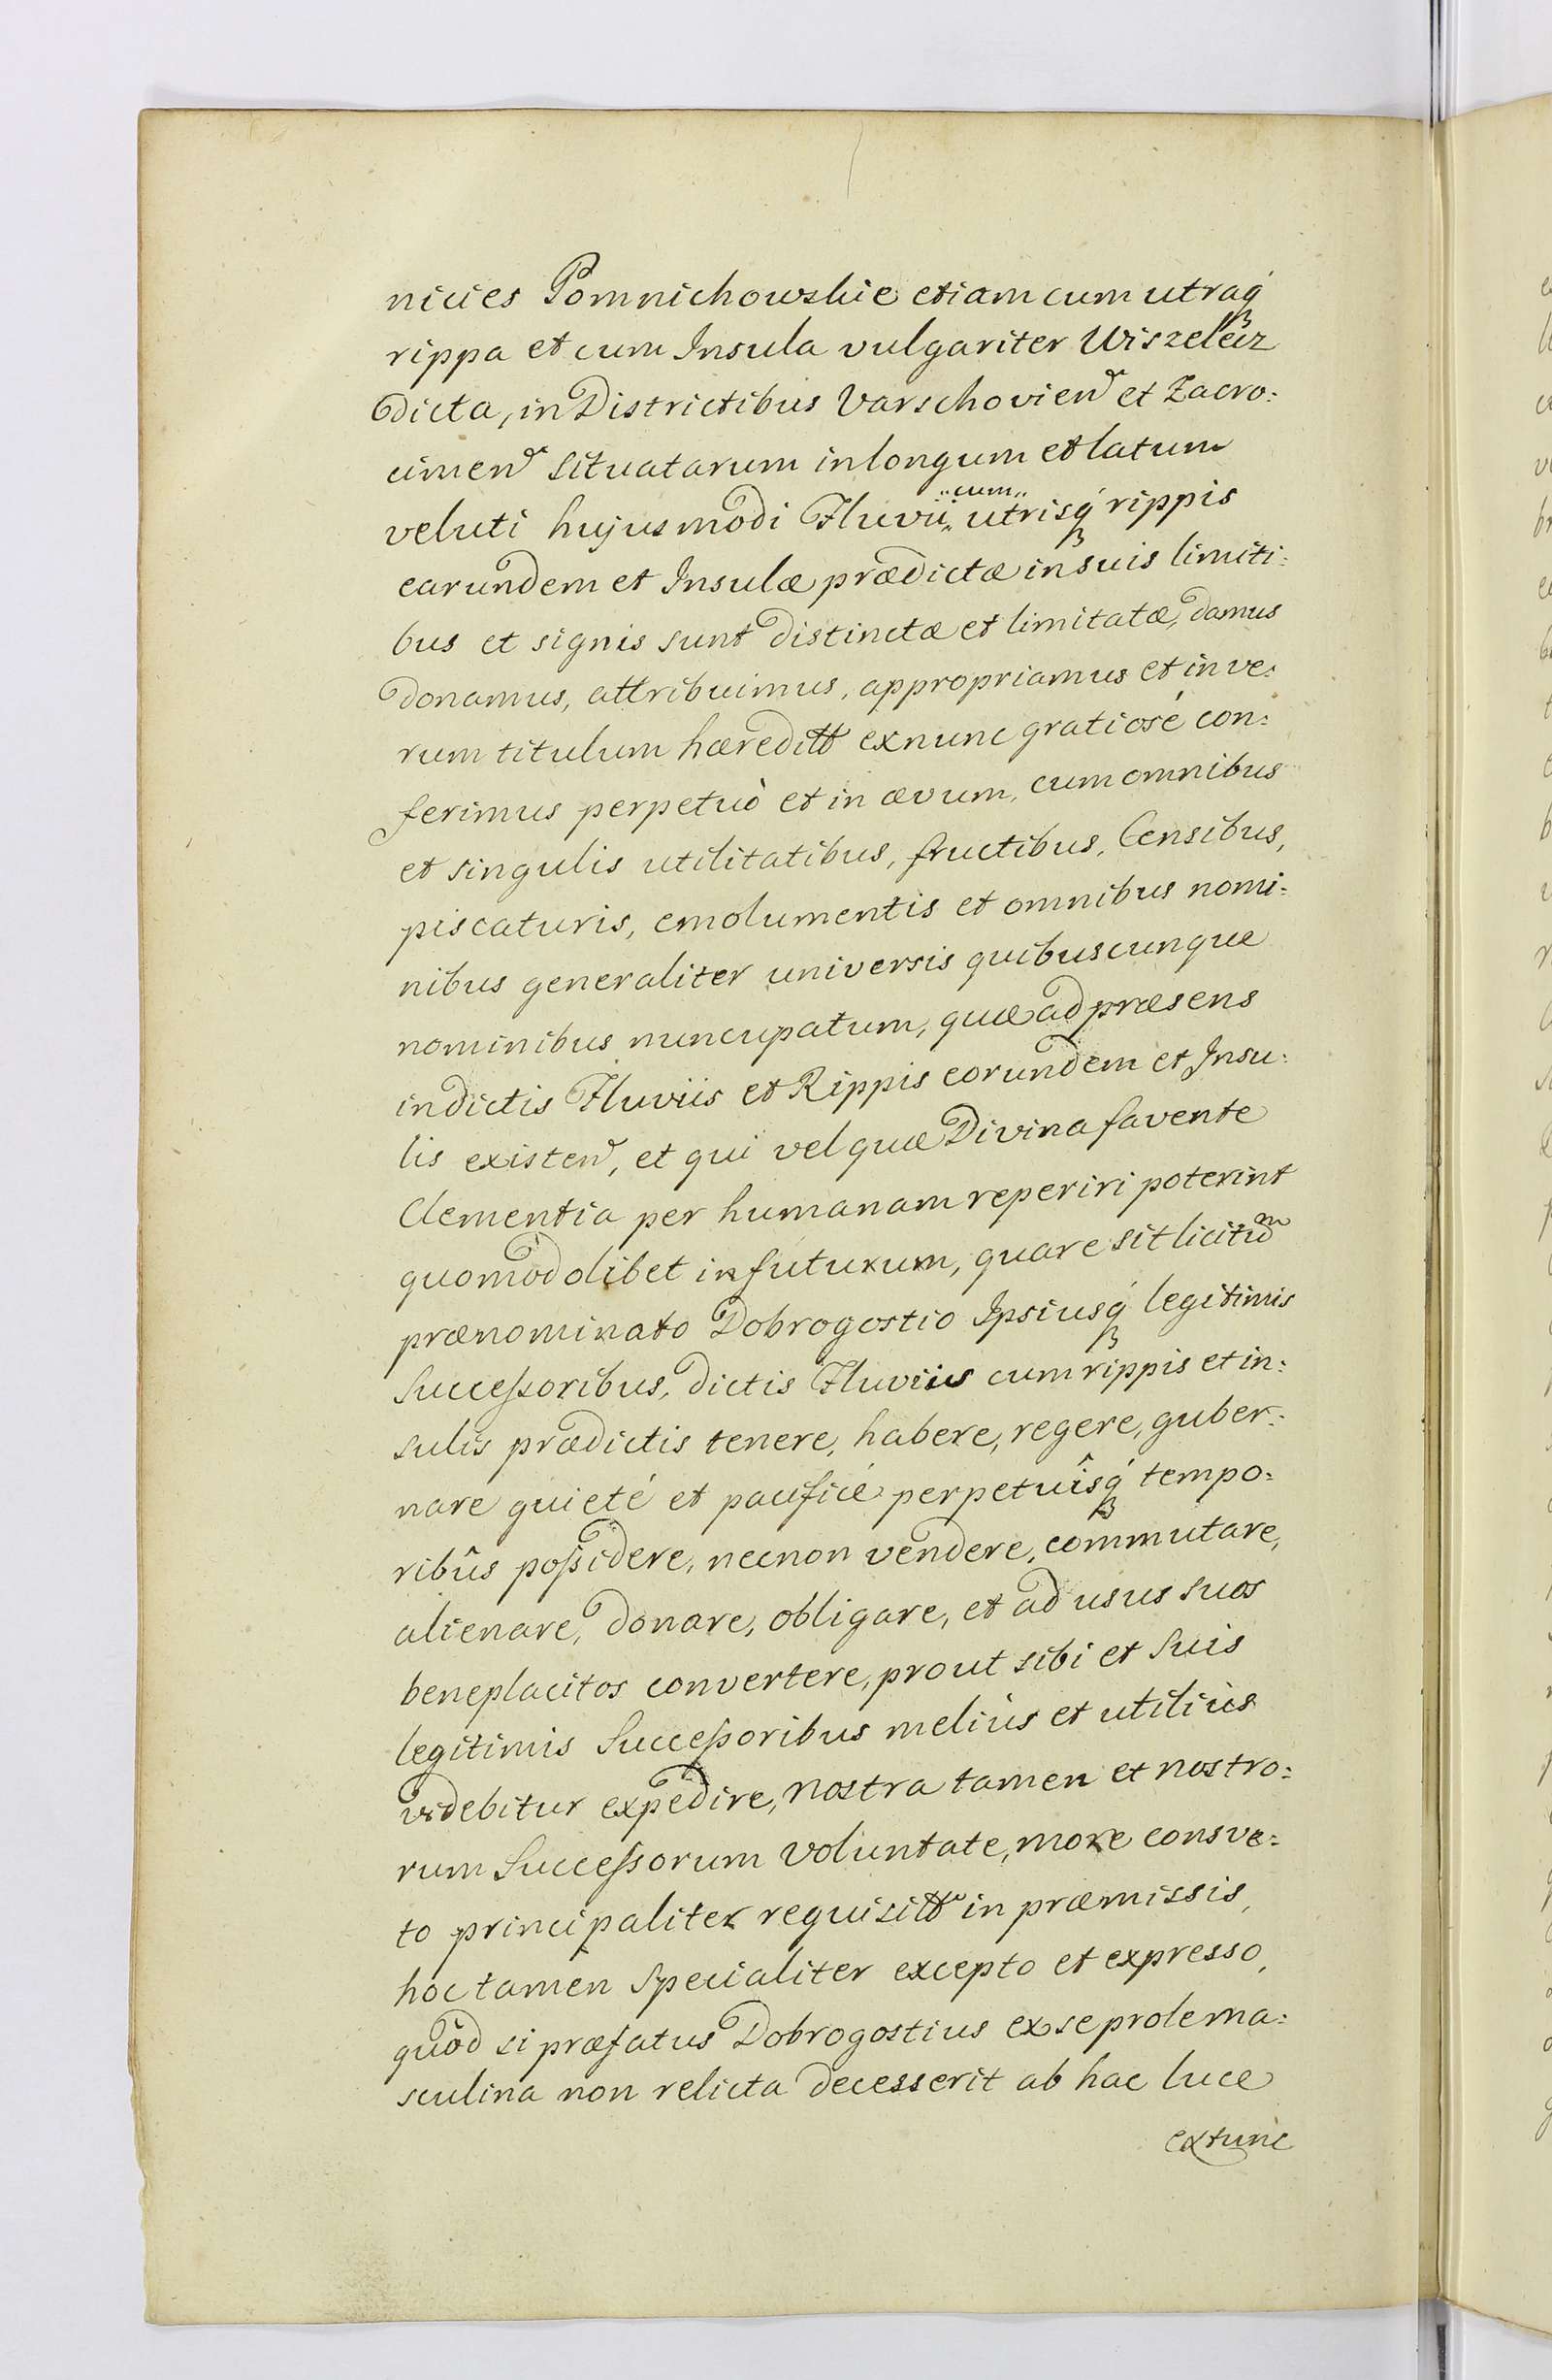 nicies Pomnichowskie etiam cum utraq́ꝫ
rippa et cum Insula vulgariter Wiszeleiz
dicta, in Districtibus Varschovien̄ et Zacro:
cimen̄ situatarum in longum et latum
veluti hujusmodi Fluvii „cum„ utrisq́ꝫ rippis
earundem et Insulæ prædictæ in suis limiti:
bus et signis sunt distinctæ et limitatæ, damus
donamus, attribuimus, appropriamus et in ve:
rum titulum hæreditt ex nunc gratiosé con:
ferimus perpetuò et in ævum, cum omnibus
et singulis utilitatibus, fructibus, Censibus,
piscaturis, emolumentis et omnibus nomi:
nibus generaliter universis quibuscunque
nominibus nuncupatum, quæ ad præsens
in dictis Fluviis et Rippis eorundem et Insu:
lis existen̄, et qui vel quæ Divina favente
Clementia per humanam reperiri poterint
quomodolibet in futurum, quare sit licitum
prænominato Dobrogostio Ipsiusq́ꝫ legitimis
Successoribus, dictis Fluviis cum rippis et in:
sulis prædictis tenere, habere, regere, guber:
nare quieté et pacificé perpetuîsq́ꝫ tempo:
ribûs possidere, necnon vendere, commutare,
alienare, donare, obligare, et ad usus suos
beneplacitos convertere, prout sibi et Suis
legitimis Successoribus meliùs et utiliùs
videbitur expedire, nostra tamen et nostro:
rum Successorum voluntate, more consve:
to principaliter requisitt in præmissis,
hoc tamen specialiter excepto et expresso,
quòd si præfatus Dobrogostius ex se prole ma:
sculina non relicta decesserit ab hac luce
extunc